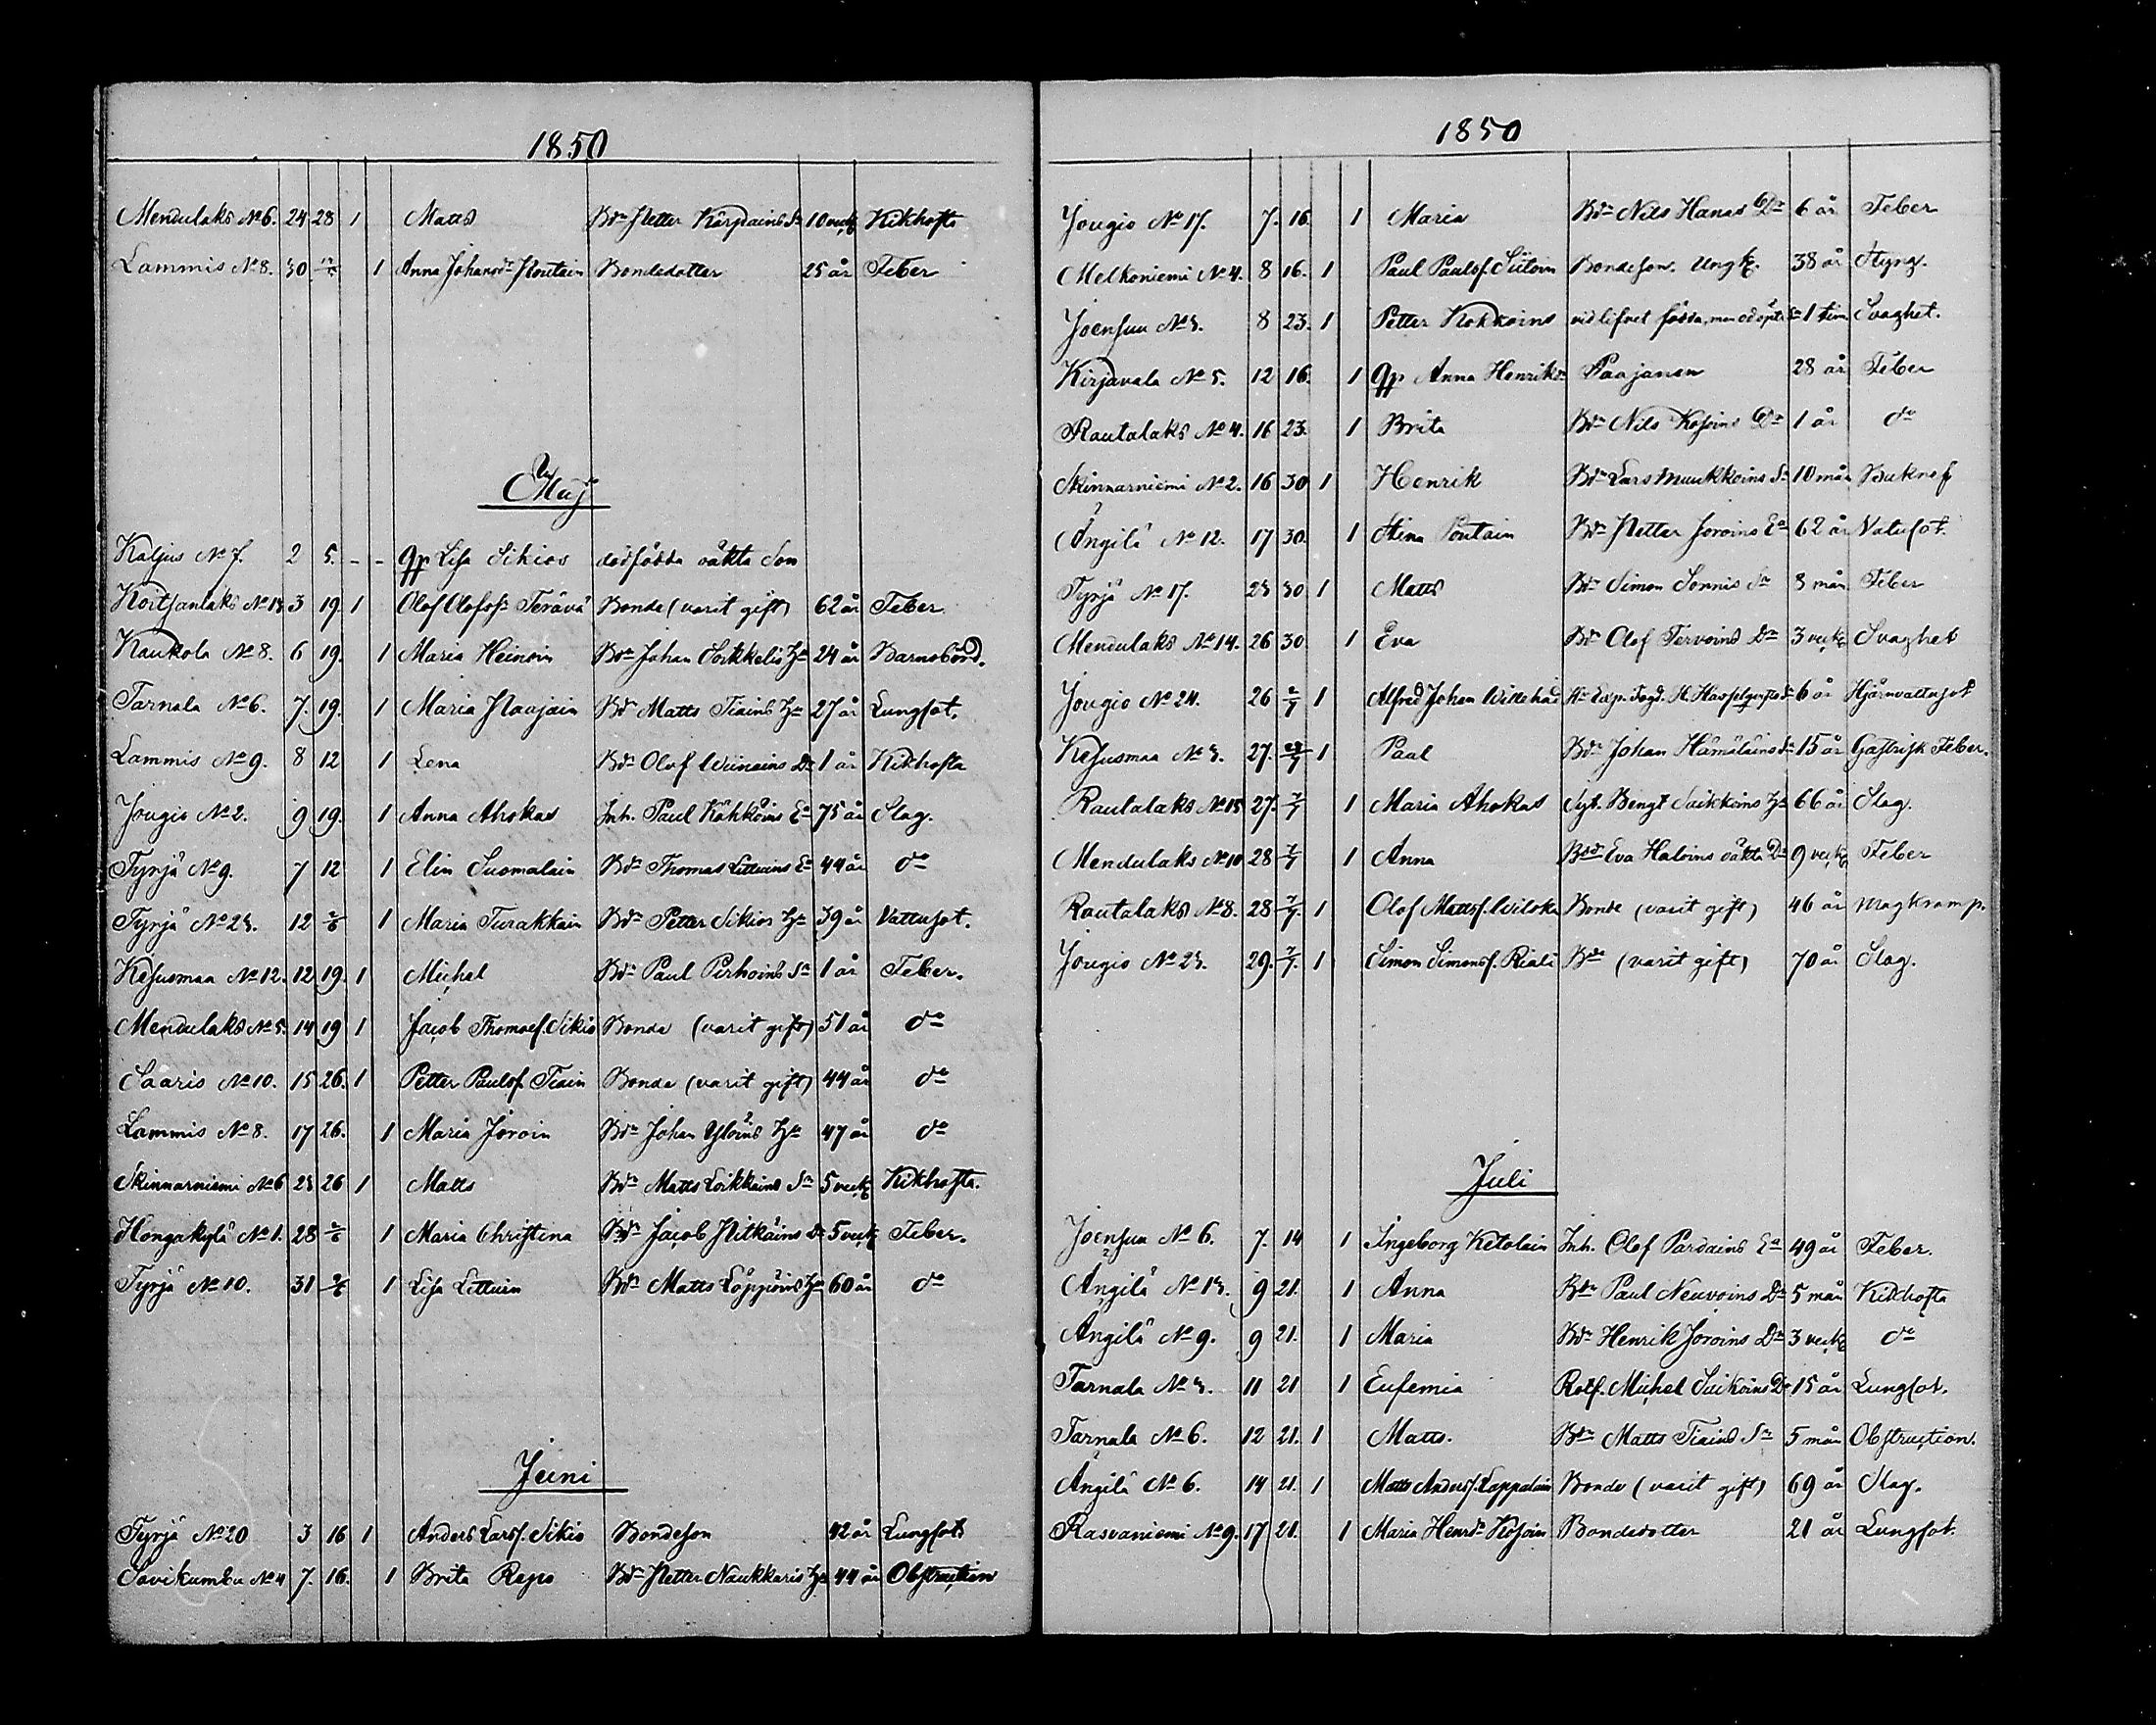 1850
Mendulaks No 6. 24 28 1 Matts Bdn Petter Kärpäins Sn 10 veck Kikhosta
Lammis No 8. 30 12/5 1 Anna Johansdr Poutain Bondedotter 25 år Feber
Maj
Kaljus No 7. 2 5. - - qp Lisa Sikiös dödfödda oäkta Son
Koitsanlaks No 18 3 19. 1 Olof Olofsn Terävä Bonde (varit gift) 62 år Feber
Kaukola No 8. 6 19. 1 Maria Heinoin Bdn Johan Sorkkelis Hu 24 år Barnsbörd.
Tarnala No 6. 7. 19. 1 Maria Paajain Bdn Matts Tiains Hu 27 år Lungsot.
Lammis No 9. 8 12 1 Lena Bdn Olof Wiinains Dr 1 år Kikhosta
Jougio No 2. 9 19. 1 Anna Ahokas Inh. Paul Kähköins Ea 75 år Slag.
Tyrjä No 9. 7 12 1 Elin Suomalain Bdn Thomas Littuins Ea 44 år do
Tyrjä No 23. 12 2/6 1 Maria Turakkain Bdn Petter Sikiös Hu 39 år Vattusot.
Kesusmaa No 12. 12 19. 1 Michel Bdn Paul Pirhoins Sn 1 år Feber.
Mendulaks No 5. 14 19 1 Jacob Thomasf. Sikiö Bonde (varit gift) 51 år do
Saaris No 10. 15 26. 1 Petter Paulsf. Tiain Bonde (varit gift) 44 år do
Lammis No 8. 17 26. 1 Maria Joroin Bdn Johan Ylöins Hu 47 år do
Skinnarniemi No 6 23 26 1 Matts Bdn Matts Loikkains Sn 5 veck Kikhosta.
Hongakylä No 1. 28 2/6 1 Maria Christina Bdn Jacob Pitkäins Dr 5 veck Feber.
Tyrjä No 10. 31 9/6 1 Lisa Littuin Bdn Matts Löppöins Hu 60 år do
Juni
Tyrjä No 20 3 16 1 Anders Larsf. Sikiö Bondeson 42 år Lungsot
Savikumbu No 4 7. 16. 1 Brita Repo Bdn Petter Naukkaris Hu 44 år Obstruction
1850
Jougio No 17. 7. 16. 1 Maria Bdn Nils Hanas Dr 6 år Feber
Melkoniemi No 4. 8 16. 1 Paul Paulsf. Siitoin Bondeson. Ungk. 38 år Styng.
Joensuu No 3. 8 23. 1 Petter Kokkoins vid lifvet födda, men odöpte Sn 1 tim Svaghet.
Kirjavala No 5. 12 16. 1 qp Anna Henriksdr Paajanen 28 år Feber
Rautalaks No 4. 16 23. 1 Brita Bdn Nils Kosoins Dr 1 år do
Skinnarniemi No 2. 16 30 1 Henrik Bdn Lars Muukkoins Sn 10 mån Bukref
Ängilä No 12. 17 30. 1 Stina Pöntäin Bdn Petter Joroins Ea 62 år Vatusot.
Tyrjä No 17. 23 30 1 Matts Bdn Simon Sonnis Sn 8 mån Feber
Mendulaks No 14. 26 30 1 Eva Bdn Olof Tervoins Dr 3 veck Svaghet
Jougio No 24. 26 2/7 1 Alfred Johan Willehad 6 år Hjärnvattusot
Kesusmaa No 3. 27. 1 Paul Bdn Johan Hämäläins Sn 15 år Gastrisk Feber.
Rautalaks No 15 27. 7/7 1 Maria Ahokas Syt. Bengt Saikkoins Hu 66 år Slag.
Mendulaks No 10 28 7/7 1 Anna Eva Haloins oäkta Dr 9 veck Feber
Rautalaks No 8. 28 7/7. 1 Olof Mattsf. Wiloka Bonde (varit gift) 46 år Magkramp.
Jougio No 23. 29. 7/7. 1 Simon Simonsf. Riali Bde (varit gift) 70 år Slag.
Juli
Joensuu No 6. 7. 14 1 Ingeborg Ketolain Inh. Olof Pardains Ea 49 år Feber.
Ängilä No 13. 9 21. 1 Anna Bdn Paul Neuvoins Dr 5 mån Kikhosta
Ängilä No 9. 9 21. 1 Maria Bdn Henrik Joroins Dr 3 veck do
Tarnala No 3. 11 21 1 Eufemia Rotf. Michel Saikoins Dr 15 år Lungsot.
Tarnala No 6. 12 21. 1 Matts. Bdn Matts Tiains Sn 5 mån Obstruction.
Ängilä No 6. 14 21. 1 Matts Andersf. Lappalain Bonde (varit gift) 69 år Slag.
Rasvaniemi No 9. 17 21. 1 Maria Henrsdr Kosoin Bondedotter 21 år Lungsot.